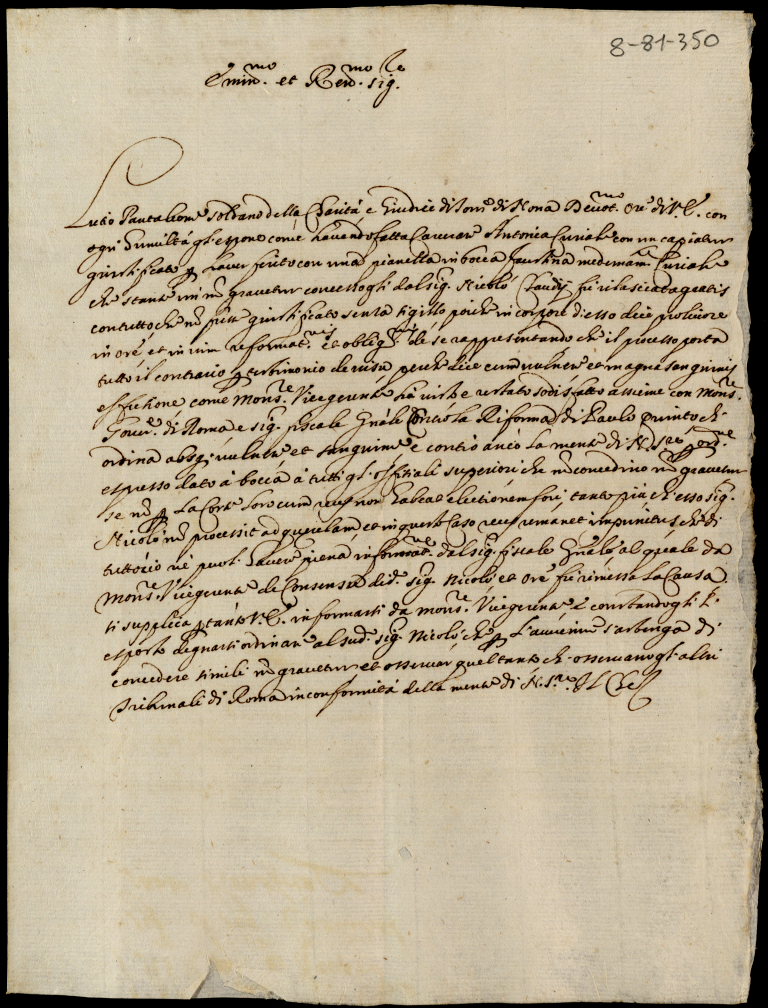 8-81-350
Emin.mo et Rev.mo Sig.re
Lutio Pantaleone soldano della Carità, e Giudice di Torre di Nona Devot.mo Ore di V.E. con
ogni humiltà gli espone come havendo fatta Carcerar Antonia Curiale con un capiatur
giustificato p haver ferito con una pianella in bocca Faustina medemam.te Curiale
che stante un nō gravetur concessogli dal sig. Nicolò fu rilassata gratis
contutto che nō fusse giustificato senza sigillo poiche in corpore d'esso dice provisore
in ore, et in vim reformat.nis et oblig. de se rappresentando che il processo porta
tutto il contrario p testimonio de visu perche dice cum vulnere et magna sanguinis
effusione come Mons.re Vicegerente hà visto e restato sodisfatto assieme con Mons.re
Gover.re di Roma e sig. fiscale Gñale contro la Riforma di Paulo Quinto ch'
ordina absq vulnere et sanguine e contro anco la mente di N. S.re p ord.ne
espresso dato à bocca à tutti gl'offitiali superiori che nō concedino nō gravetur
se nō p la Corte loro cum reus non habeat electionem fori, tanto più ch'esso sig.
Nicolò nō processit ad querelam, et in questo caso reus remanet impunitus, che di
tutto ciò ne puol haver piena informat.ne dal sig. fiscale Gñale al quale da
Mons.re Vicegerente de Consensu di d. sig. Nicolò et Ore fù rimessa la Causa
si supplica p tanto V.E. informarsi da mons.re Vicegerente e constandogli l'
esposto degnarsi ordinare al sud. sig. Nicolò che p l'avvenire s'astenga di
concedere simili nō gravetur et osservar quel tanto ch'osservano gl'altri
Tribunali di Roma in conformità della mente di N. S.re